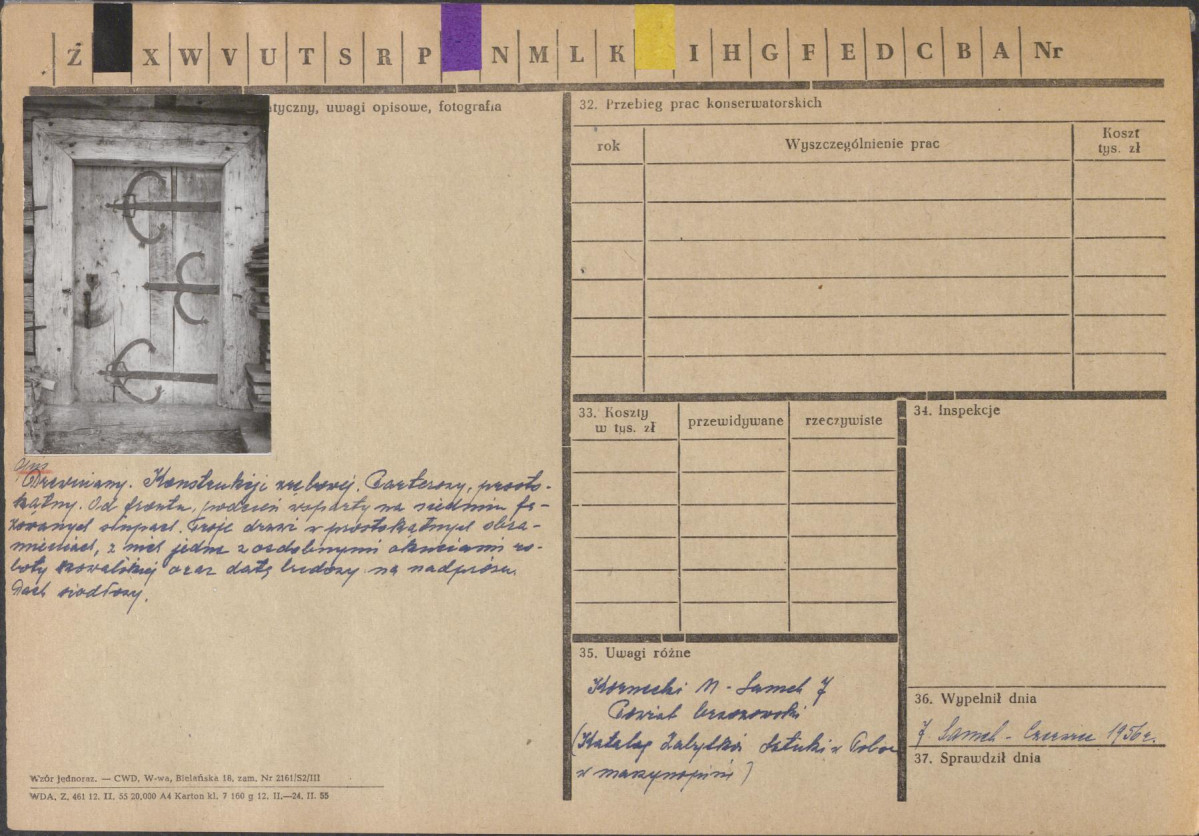 Ż X W V U T S R P N M L K I H G F E D C B A Nr
tyczny, uwagi opisowe, fotografia
Drewniany. Konstrukcji zrębowej. Parterowy, prosto-
kątny. Od frontu, podcień wsparty na siedmiu fa-
zowanych słupach. Troje drzwi w prostokątnych obra-
mieniach, z nich jedne z ozdobnymi okuciami ro-
boty kowalskiej oraz datą budowy na nadprożu.
Dach siodłowy.
Wzór jednoraz. — CWD, W-wa, Bielańska 18, zam. Nr 2161/S2/III
WDA. Z. 461 12. II. 55 20,000 A4 Karton kl. 7 160 g 12. II.—24. II. 55
32. Przebieg prac konserwatorskich
rok
Wyszczególnienie prac
Koszt
tys. zł
33. Koszty
w tys. zł
przewidywane
rzeczywiste
34. Inspekcje
35. Uwagi różne
Kornecki M - Samek J
Powiat brzozowski
(Katalog Zabytków Sztuki w Polsce
w maszynopisie)
36. Wypełnił dnia
J. Samek - Czerwiec 1956 r.
37. Sprawdził dnia